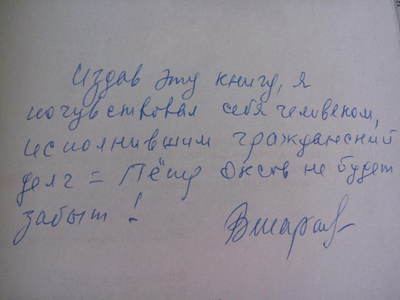 Издав эту книгу, я
почувствовал себя человеком,
исполнившим гражданский
долг = Пётр Оксов не будет
забыт!